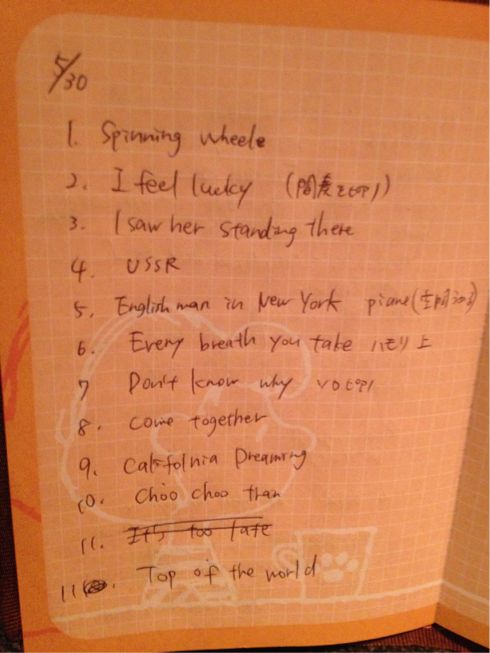 5/30
1. Spinning wheele
2. I feel lucky (間奏をピアノ)
3. I saw her standing there
4. USSR
5. English man in New York piano
6. Every breath you take ハモリ上
7 Don't know why ピアノ
8. come together
9. Califolnia Dreaming
10. Choo choo tran
11. It's too late
11. Top of the world